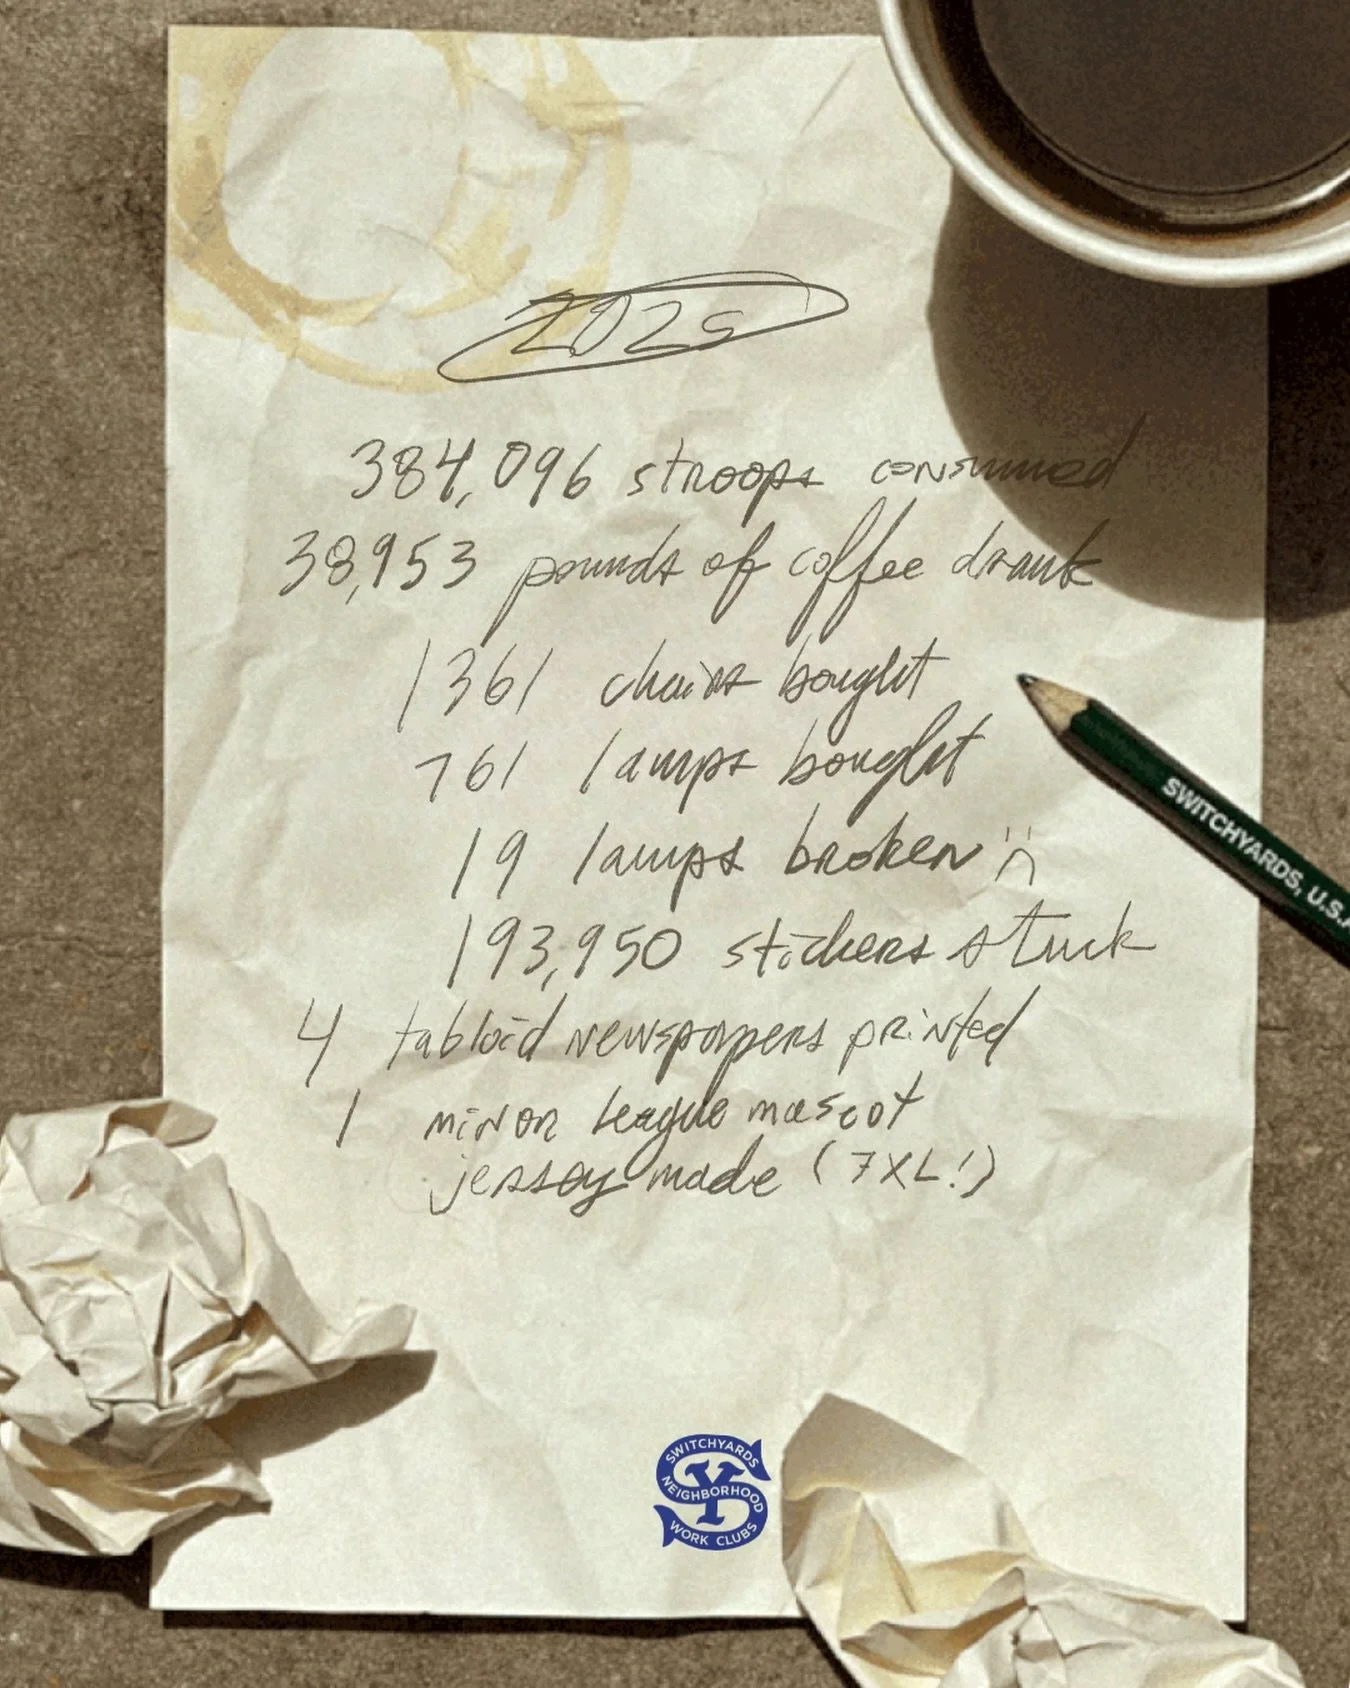 2025
384,096 stroops consumed
38,953 pounds of coffee drank
1361 chairs bought
761 lamps bought
19 lamps broken :(
193,950 stickers stuck
4 tabloid newspapers printed
1 minor league mascot
jersey made (7XL!)
SWITCHYARDS, U.S.A
SWITCHYARDS
SY
NEIGHBORHOOD
WORK CLUBS